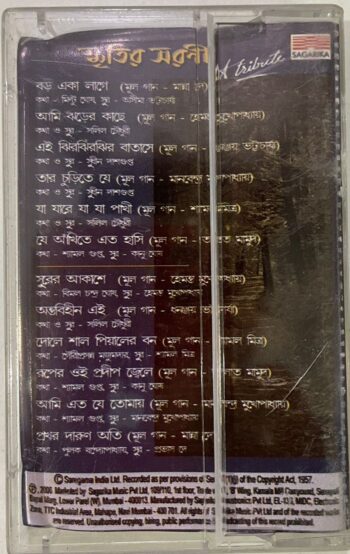 স্মৃতির সরণী
A tribute
SAGARIKA
বড় একা লাগে (মূল গান - মান্না দে)
কথা - মিল্টু ঘোষ, সুঃ - অসীমা ভট্টাচার্য
আমি ঝড়ের কাছে (মূল গান - হেমন্ত মুখোপাধ্যায়)
কথা ও সুঃ - সলিল চৌধুরী
এই ঝিরঝিরঝির বাতাসে (মূল গান - ধনঞ্জয় ভট্টাচার্য)
কথা ও সুঃ - সুধীন দাশগুপ্ত
তার চুড়িতে যে (মূল গান - মানবেন্দ্র মুখোপাধ্যায়)
কথা ও সুঃ - সুধীন দাশগুপ্ত
যা যারে যা যা পাখী (মূল গান - শ্যামল মিত্র)
কথা ও সুঃ - সলিল চৌধুরী
যে আঁখিতে এত হাসি (মূল গান - তালাত মামুদ)
কথা - শ্যামল গুপ্ত, সুঃ - কানু ঘোষ
দূরের আকাশে (মূল গান - হেমন্ত মুখোপাধ্যায়)
কথা - বিমল চন্দ্র ঘোষ, সুঃ - হেমন্ত মুখোপাধ্যায়
অন্তবিহীন এই (মূল গান - ধনঞ্জয় ভট্টাচার্য)
কথা ও সুঃ - সলিল চৌধুরী
দোলে শাল পিয়ালের বন (মূল গান - শ্যামল মিত্র)
কথা - গৌরিপ্রসন্ন মজুমদার, সুঃ - শ্যামল মিত্র
রূপের ওই প্রদীপ জ্বেলে (মূল গান - তালাত মামুদ)
কথা - শ্যামল গুপ্ত, সুঃ - কানু ঘোষ
আমি এত যে তোমায় (মূল গান - মানবেন্দ্র মুখোপাধ্যায়)
কথা - শ্যামল গুপ্ত, সুঃ - মানবেন্দ্র মুখোপাধ্যায়
প্রখর দারুণ অতি (মূল গান - মান্না দে)
কথা - পুলক বন্দ্যোপাধ্যায়, সুঃ - প্রভাস দে
© Saregama India Ltd. Recorded as per provisions of Sec of the Copyright Act, 1957.
℗ 2006 Marketed by Sagarika Music Pvt Ltd, 109/110, 1st floor, 'B' Wing, Kamala Mill Compound, Senapati
Bapat Marg, Lower Parel (W), Mumbai - 400013. Manufactured by Electronics Pvt Ltd, MIDC, Electronic
Zone, TTC Industrial Area, Mahape, Navi Mumbai - 400 701. All rights of Sagarika Music Pvt Ltd and of the recorded work
are reserved. Unauthorised copying, hiring, public performance broadcasting of this record prohibited.